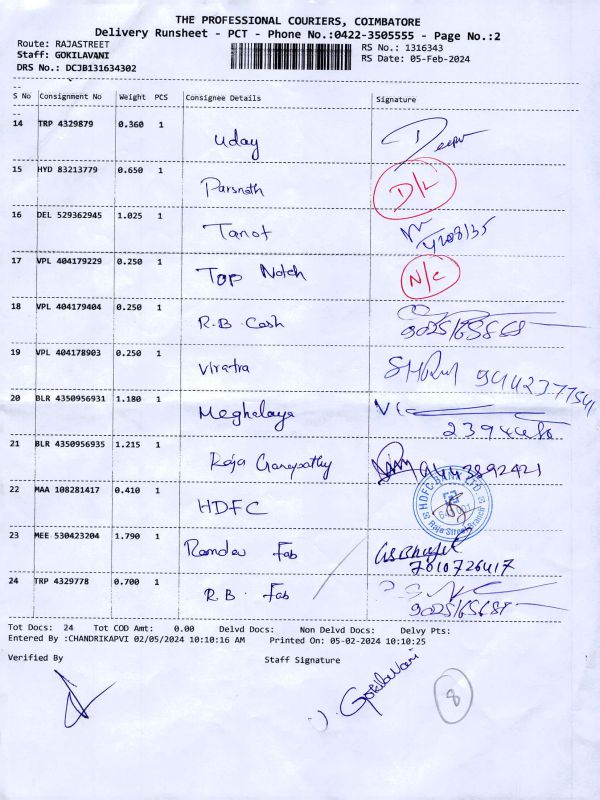 THE PROFESSIONAL COURIERS, COIMBATORE
Delivery Runsheet - PCT - Phone No.:0422-3505555 - Page No.:2
Route: RAJASTREET RS No.: 1316343
Staff: GOKILAVANI RS Date: 05-Feb-2024
DRS No.: DCJB131634302
S No Consignment No Weight PCS Consignee Details Signature
14 TRP 4329879 0.360 1 Uday
15 HYD 83213779 0.650 1 Parsnath D/L
16 DEL 529362945 1.025 1 Tanot
17 VPL 404179229 0.250 1 Top Notch N/C
18 VPL 404179404 0.250 1 R.B. Cash
19 VPL 404178903 0.250 1 Viratra
20 BLR 4350956931 1.180 1 Meghalaya
21 BLR 4350956935 1.215 1 Raja Ganapathy 9443892421
22 MAA 108281417 0.410 1 HDFC HDFC BANK LTD. Raja Street Branch
23 MEE 530423204 1.790 1 Ramdev Fab 7010726417
24 TRP 4329778 0.700 1 R.B. Fab
Tot Docs: 24 Tot COD Amt: 0.00 Delvd Docs: Non Delvd Docs: Delvy Pts:
Entered By :CHANDRIKAPVI 02/05/2024 10:10:16 AM Printed On: 05-02-2024 10:10:25
Verified By Staff Signature
Gokilavani 8